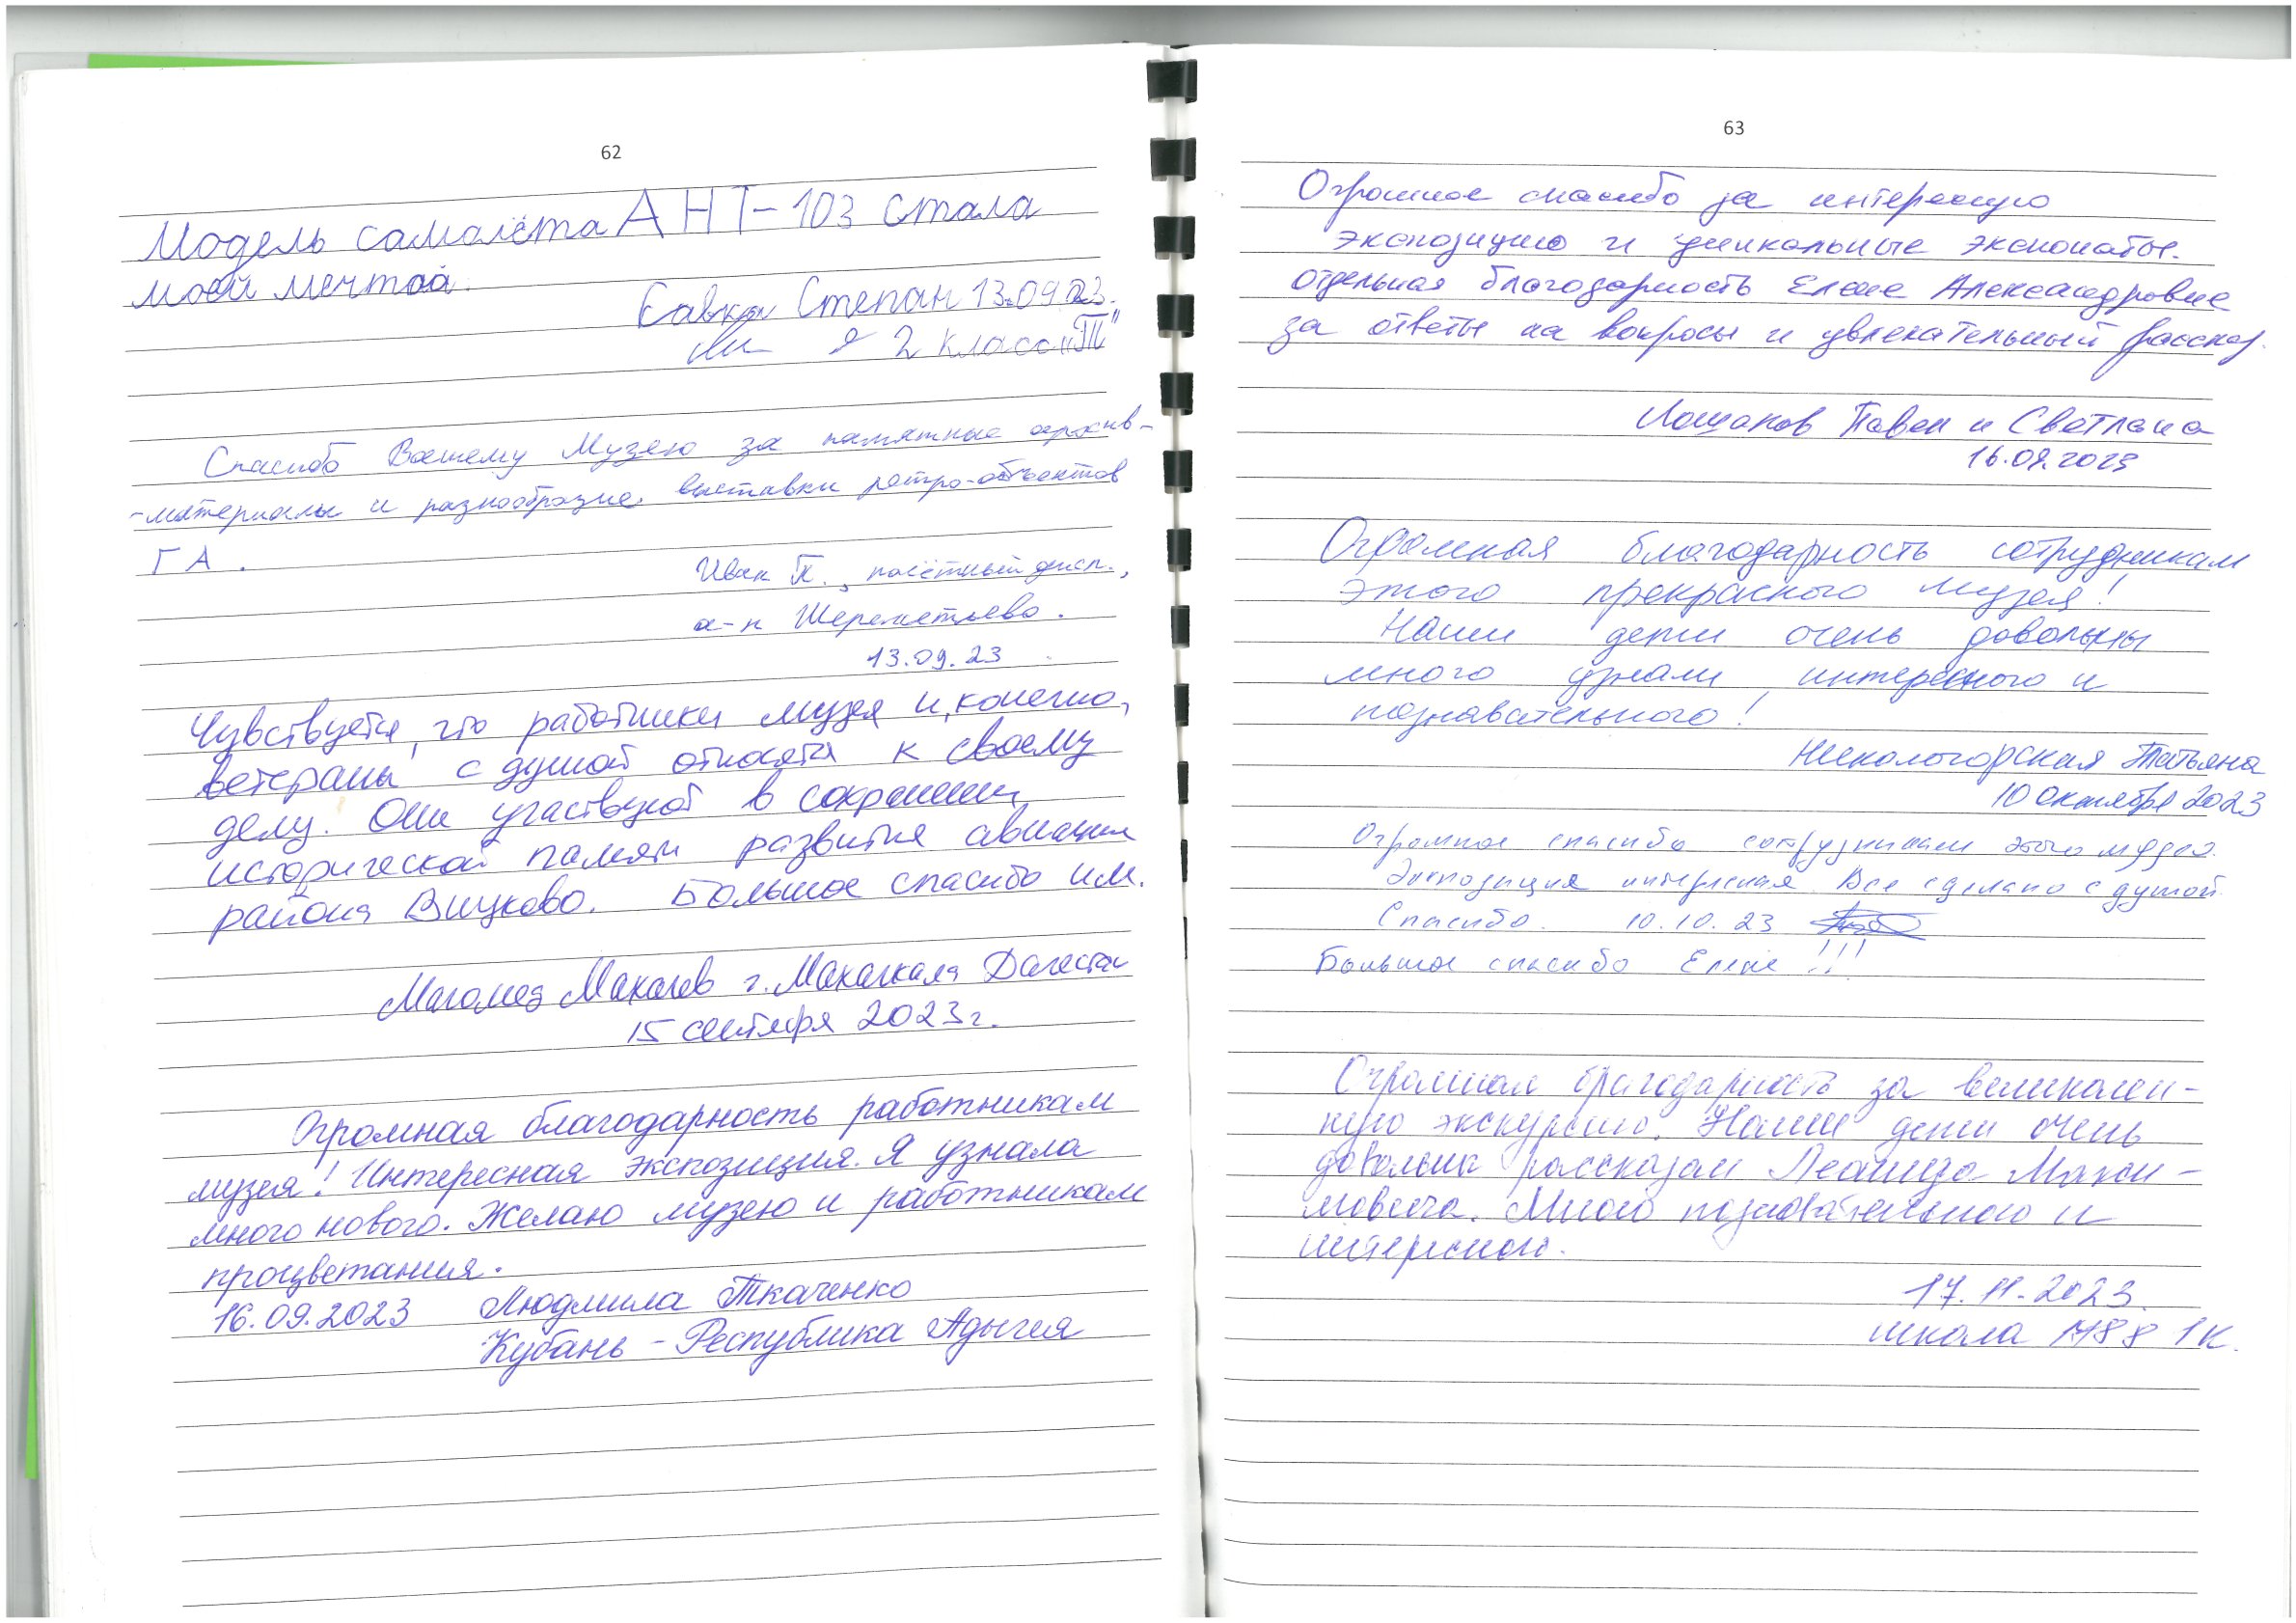 62
Модель самолёта АНТ-103 стала
моей мечтой.
Савка Степан 13.09.23.
я 2 класс "П"
Спасибо Вашему Музею за памятные архив-
-материалы и разнообразие выставки ретро-объектов
ГА.
Иван П., полётный дисп.,
а-п Шереметьево.
13.09.23
Чувствуется, что работники музея и, конечно,
ветераны с душой относятся к своему
делу. Они участвуют в сохранении
исторической памяти развития авиации
района Внуково. Большое спасибо им.
Магомед Махачев г. Махачкала Дагестан
15 сентября 2023г.
Огромная благодарность работникам
музея! Интересная экспозиция. Я узнала
много нового. Желаю музею и работникам
процветания.
16.09.2023 Людмила Ткаченко
Кубань - Республика Адыгея
63
Огромное спасибо за интересную
экспозицию и уникальные экспонаты.
отдельная благодарность Елене Александровне
за ответы на вопросы и увлекательный рассказ.
Лощаков Павел и Светлана
16.09.2023
Огромная благодарность сотрудникам
этого прекрасного музея!
Наши дети очень довольны
много узнали интересного и
познавательного!
Татьяна
10 октября 2023
Огромное спасибо сотрудникам этого музея.
Экспозиция интересная. Все сделано с душой.
Спасибо. 10.10.23
Большое спасибо Елене!!!
Огромная благодарность за великолеп-
ную экскурсию. Наши дети очень
довольны рассказом Леонида Макси-
мовича. Много познавательного и
интересного.
17.11.2023.
школа 1788 1К.